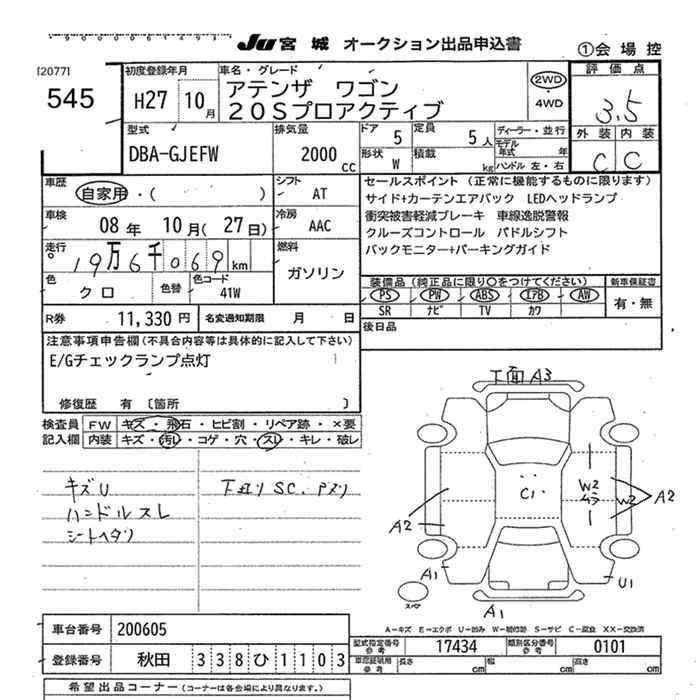 JU宮城 オークション出品申込書 ①会場控
[2077]
545
初度登録年月 H27 10月
車名・グレード
アテンザ ワゴン
20Sプロアクティブ
2WD
4WD
評価点
3.5
外装 内装
C C
型式
DBA-GJEFW
排気量
2000cc
ドア 5 定員 5人
形状 W 積載 kg
ディーラー・並行
モデル年式 年
ハンドル 左・右
車歴 自家用・( )
シフト AT
車検 08年 10月(27日)
冷房 AAC
走行 19万6千069km
燃料 ガソリン
色 クロ 色替 色コード 41W
R券 11,330円 名変通知期限 月 日
セールスポイント (正常に機能するものに限ります)
サイド+カーテンエアバック LEDヘッドランプ
衝突被害軽減ブレーキ 車線逸脱警報
クルーズコントロール パドルシフト
バックモニター+パーキングガイド
装備品(純正品に限り○をつけてください) 新車保証書
PS PW ABS エアB AW 有・無
SR ナビ TV カワ
後日品
注意事項申告欄(不具合内容等は具体的に記入して下さい)
E/Gチェックランプ点灯
修復歴 有 〔箇所 〕
検査員記入欄
FW キズ・飛石・ヒビ割・リペア跡・×要
内装 キズ・汚レ・コゲ・穴・スレ・キレ・破レ
キズU
ハンドルスレ
シートヘタリ
下廻リSC.
下面A3
C1
W2
W2
A2
A2
A1
U1
A1
スペア
A―キズ E―エクボ U―凹み W―補修跡 S―サビ C―腐食 XX―交換済
車台番号 200605
型式指定番号 参考 17434 類別区分番号 参考 0101
登録番号 秋田 338ひ1103
車庫証明用 参考 長さ cm 幅 cm 高さ cm
希望出品コーナー(コーナーは各会場により異なります。)